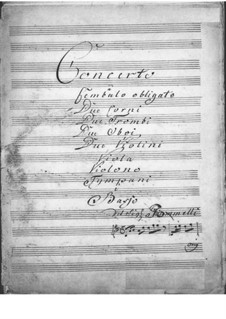 Concerto
Cembalo obligato
Due Corni
Due Trombi
Due Oboi
Due Violini
Viola
Violono
Tympani
e
Basso
del Sigr